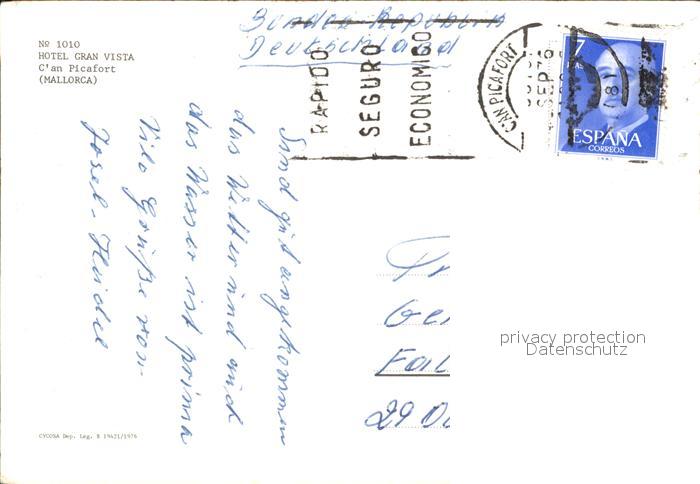 Nº 1010
HOTEL GRAN VISTA
C'an Picafort
(MALLORCA)
Bundes Republik
Deutschland
RAPIDO
SEGURO
ECONOMICO
CAN PICAFORT
SEP 76
7
PTAS
ESPAÑA
CORREOS
Sind gut angekommen
das Wetter und auch
das Wasser ist prima
Viele Grüße von
Josef - Heidel
Fa
29 O
privacy protection
Datenschutz
CYCOSA Dep. Leg. B 19421/1976